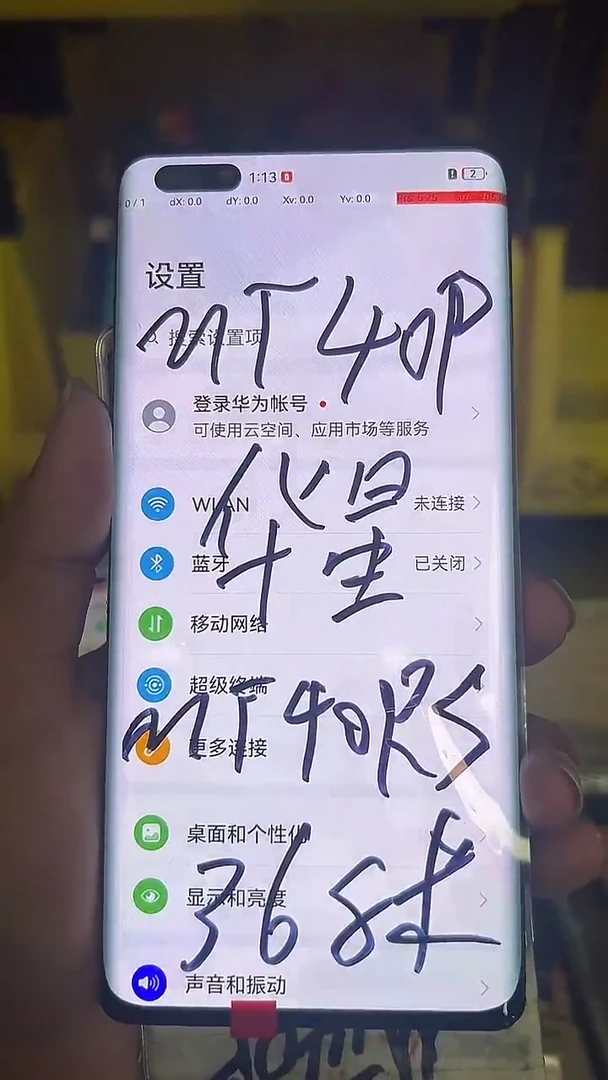 1:13 2
0/1 dX: 0.0 dY: 0.0 Xv: 0.0 Yv: 0.0
设置
MT 40P
搜索设置项
登录华为帐号
可使用云空间、应用市场等服务
华星
WLAN 未连接
蓝牙 已关闭
移动网络
超级终端
MT 40RS
更多连接
桌面和个性化
368
显示和亮度
声音和振动